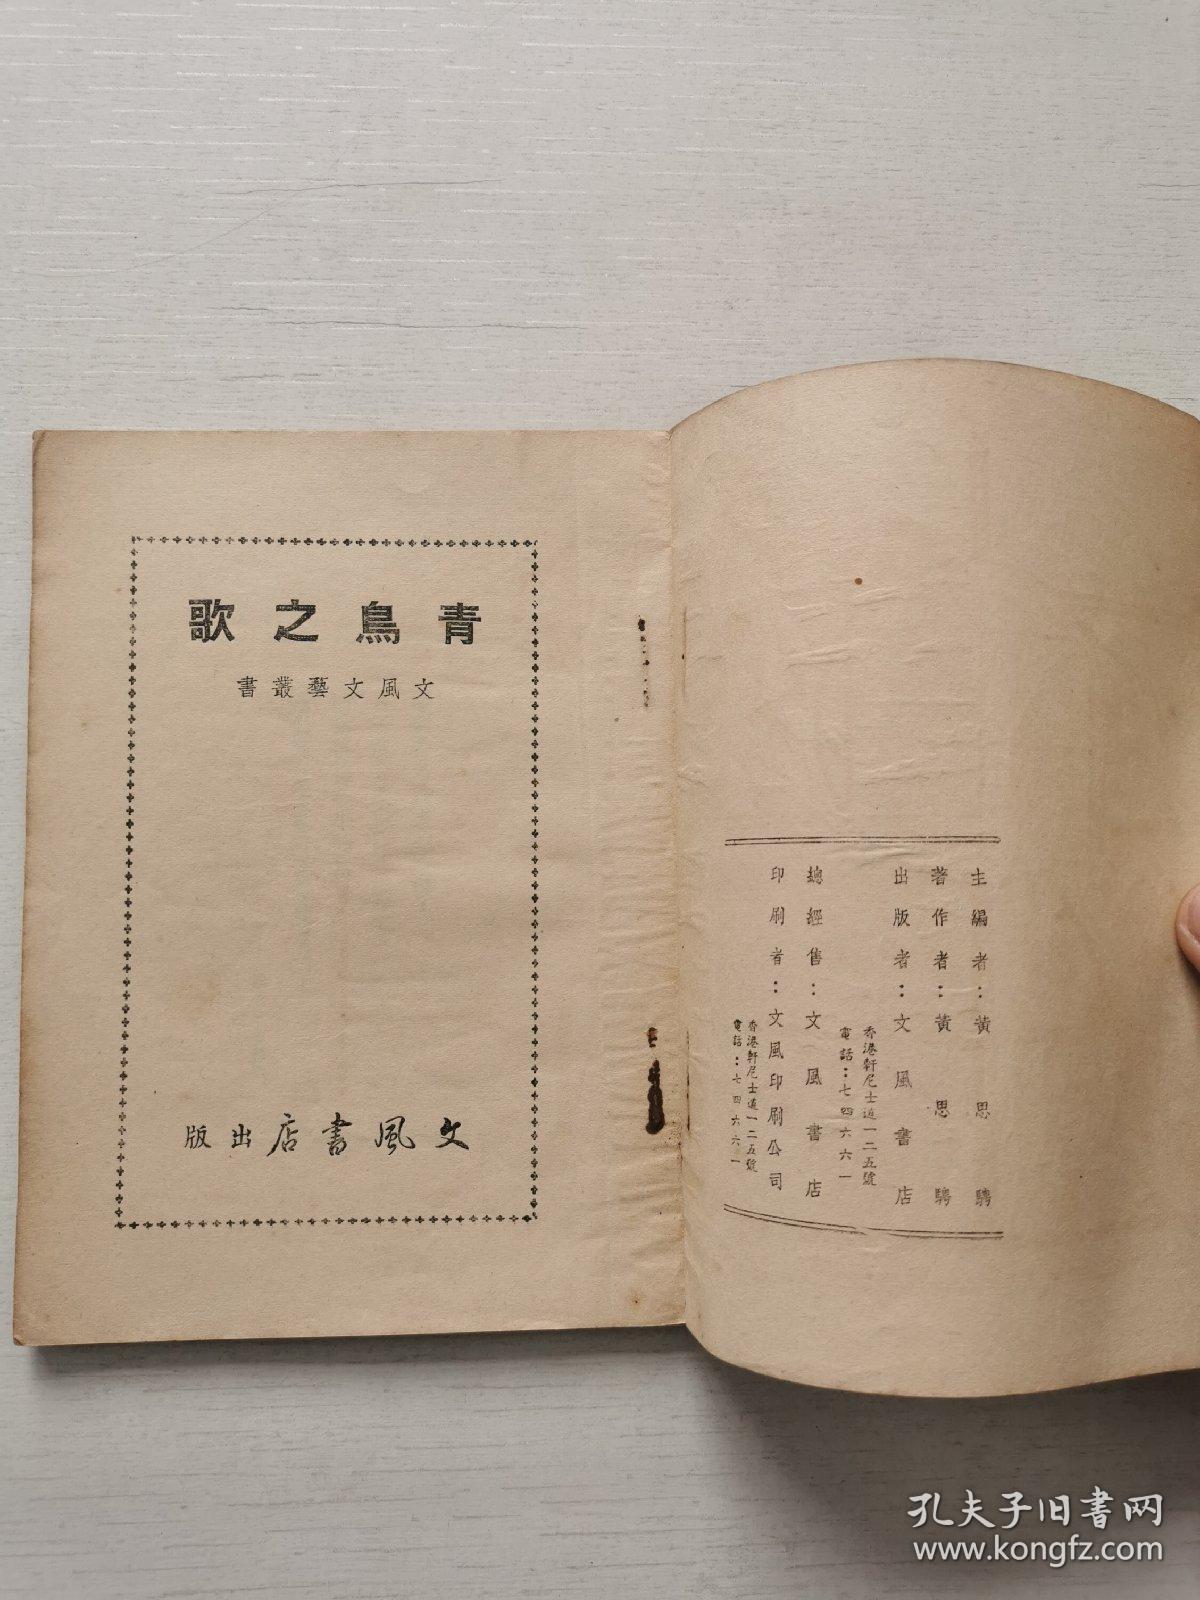 青鳥之歌
文風文藝叢書
文風書店出版
主編者：黃思騁
著作者：黃思騁
出版者：文風書店
香港軒尼士道一二五號
電話：七四六六一
總經售：文風書店
印刷者：文風印刷公司
香港軒尼士道一二五號
電話：七四六六一
孔夫子旧书网
www.kongfz.com